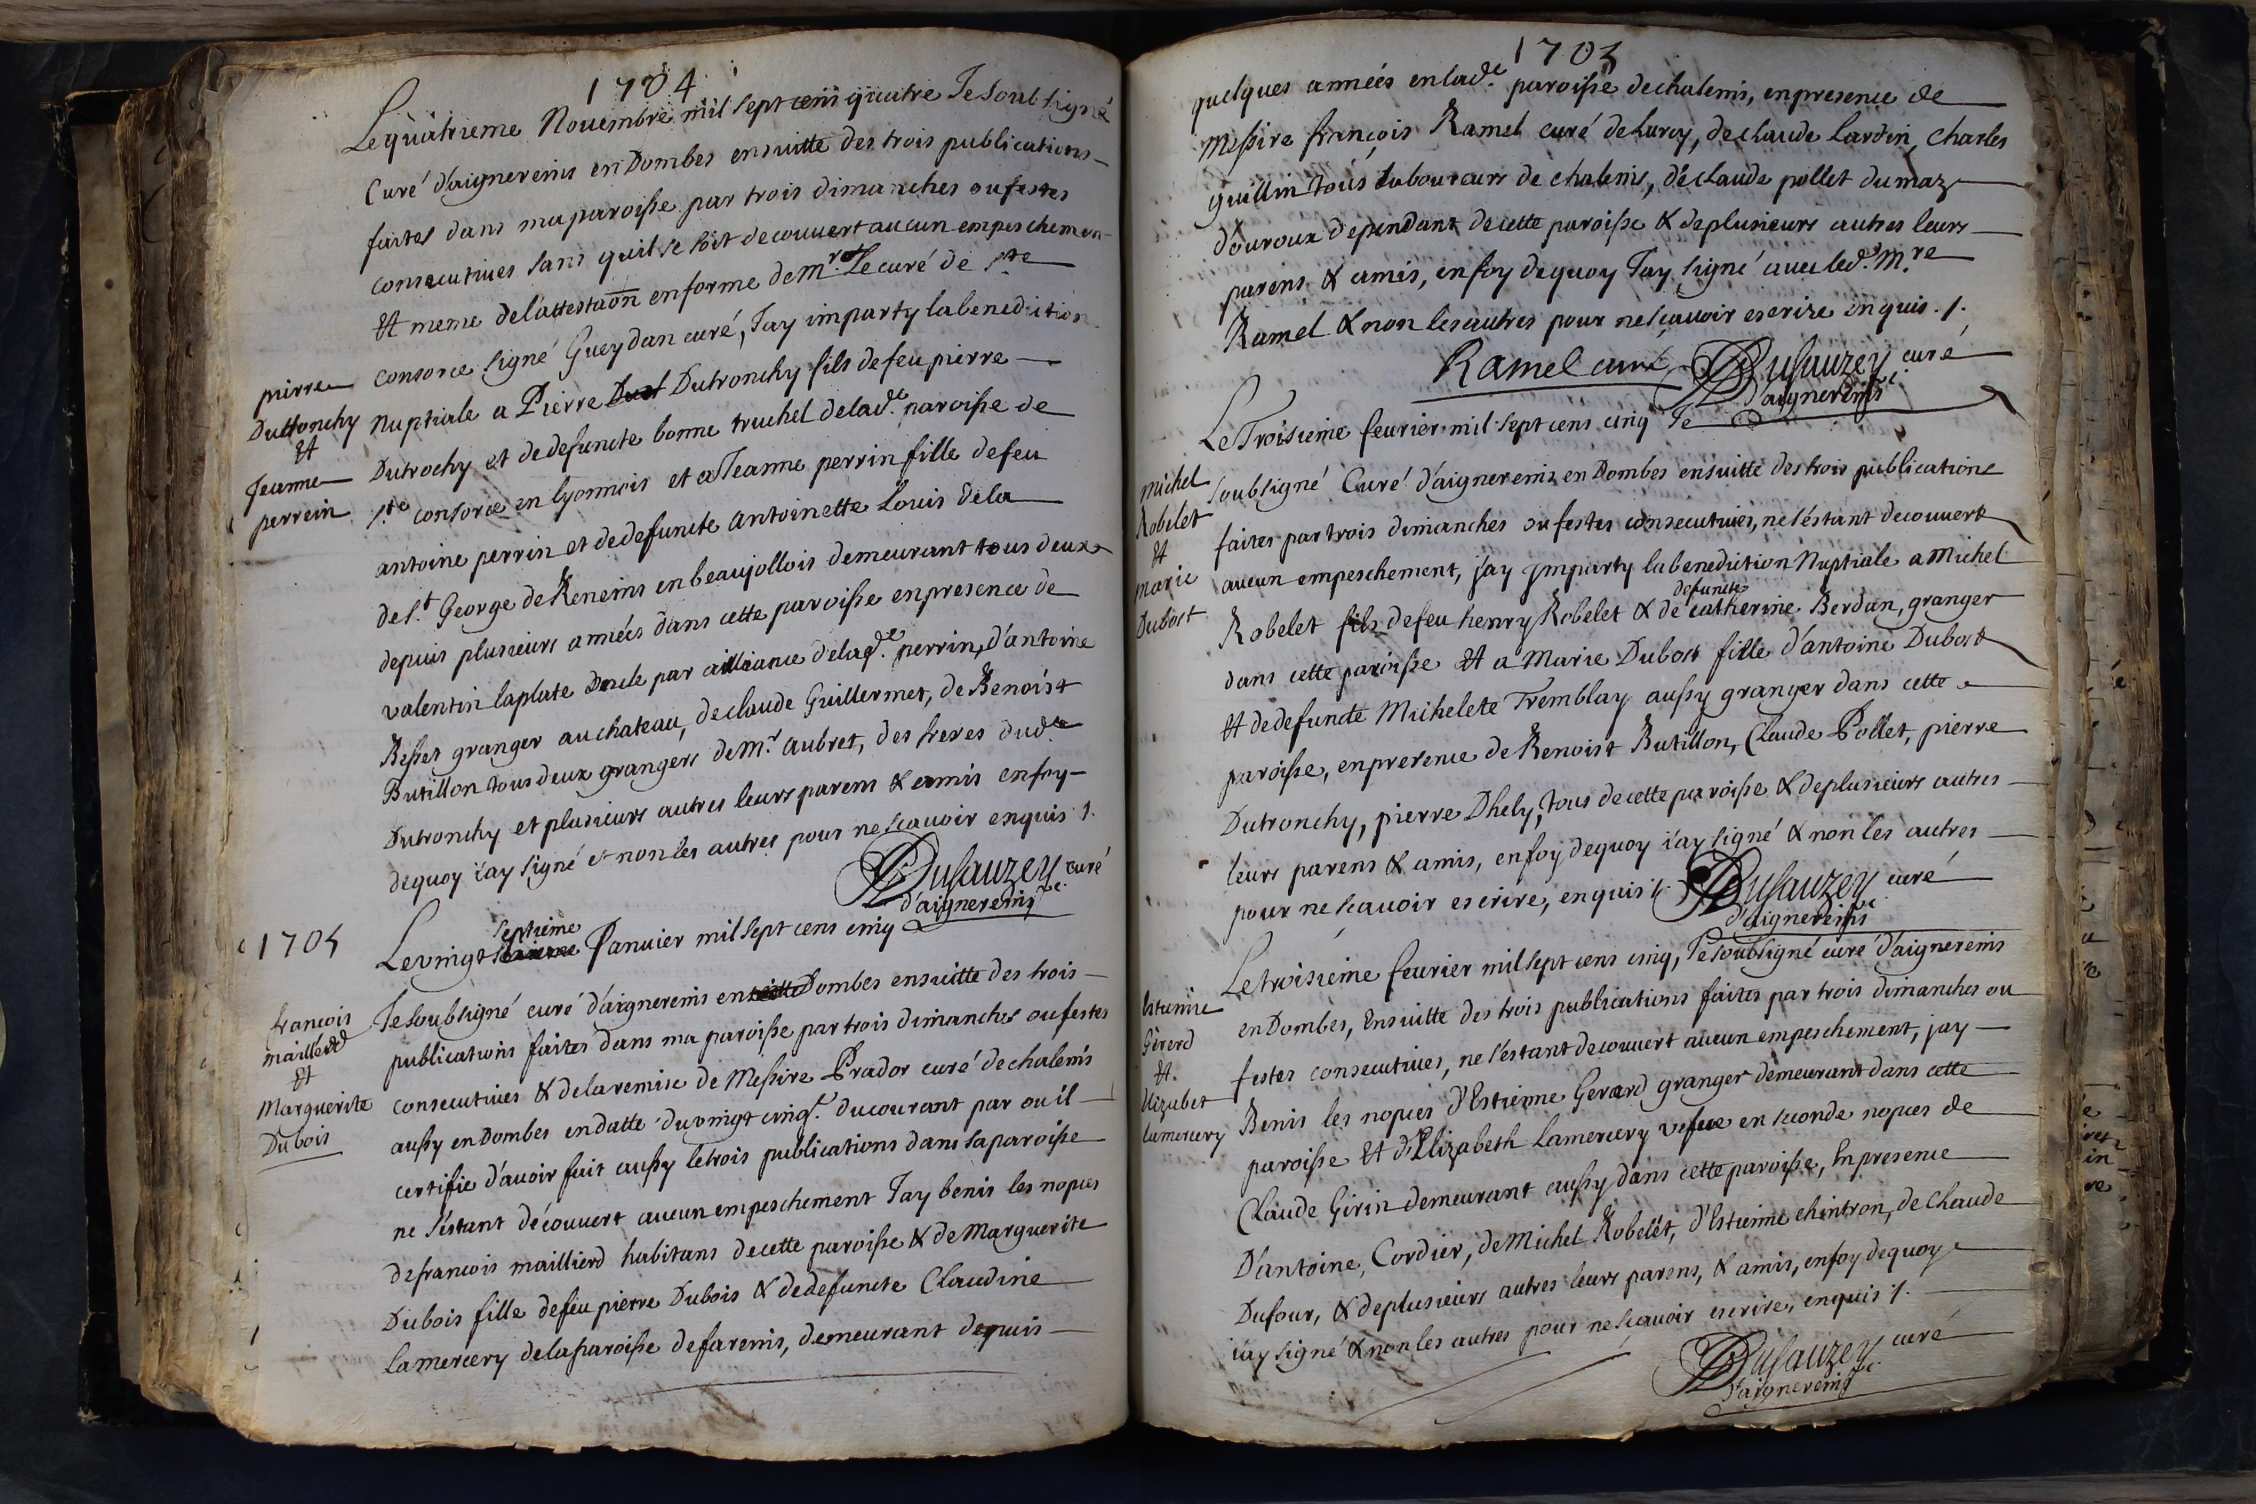 1704
Le quatrieme Nouembre mil sept cens quatre Je soubsigné
Curé d'aignereins en Dombes ensuitte des trois publications
faites dans ma paroisse par trois dimanches ou festes
consecutiues sans quil se soit decouuert aucun empeschemen
Et meme de l'attestaõn en forme de mr. Le curé de ste
consorce signé Gueydan curé, Jay imparty la benediction
pierre
Dutronchy
Et
Jeanne
perrein
Nuptiale a Pierre Dutronchy fils de feu pierre
Dutrochy et de defuncte bonne truchel de lad.e paroisse de
s.te consorce en lyonnois et a Jeanne perrin fille de feu
antoine perrin et de defuncte antoinette Louis de la
de s.t George de Reneins en beaujollois demeurant tous deux
depuis plusieurs années dans cette paroisse en presence de
valentin laplate oncle par ailliance de lad.e perrin, d'antoine
Besset granger au chateau, de claude Guillermet, de Benoist
Butillon tous deux grangers de m.r Aubret, des freres dud.
Dutronchy et plusieurs autres leurs parens & amis en foy
dequoy i'ay signé et non les autres pour ne scauoir enquis ./.
Dusauzey curé
d'aignereins
1705
septieme
Le vingt Januier mil sept cens cinq
francois
mailliérd
Et
Marguerite
Dubois
Je soubsigné curé d'aignereins en Dombes ensuitte des trois
publications faites dans ma paroisse par trois dimanches ou festes
consecutiues & de la remise de Messire Prador curé de chaleins
aussy en Dombes en datte du vingt cinq.e du courant par ou il
certifie d'auoir fait aussy le trois publications dans sa paroisse
ne s'estant découuert aucun empeschement Jay benis les nopces
de francois maillierd habitans de cette paroisse & de Marguerite
Dubois fille de feu pierre Dubois & de defuncte Claudine
Lamercery de la paroisse de fareins, demeurant depuis
1705
quelques années en lad.e paroisse de chaleins, en presence de
Messire françois Ramel curé de Lurcy, de claude Lardin, Charles
guillin tous labourcurs de chaleins, de claude pollet du maz
douroux dependant de cette paroisse & de plusieurs autres leurs
parens & amis, en foy dequoy Jay signé auec led. M.re
Ramel & non les autres pour ne scauoir escrire enquis ./.
Ramel curé Dusauzey curé
d'aignereins
Le Troisieme feurier mil sept cens cinq Je
michel
Robelet
Et
marie
Dubost
soubsigné Curé d'aignereins en Dombes ensuitte des trois publications
faites par trois dimanches ou festes consecutiues, ne s'estant decouuert
aucun empeschement, j'ay ymparty la benediction Nuptiale a Michel
defuncte
Robelet fils de feu henry Robelet & de catherine Berdan, granger
dans cette paroisse Et a Marie Dubost fille d'antoine Dubost
Et de defuncte Michelete Tremblay aussy granger dans cette
paroisse, en presence de Benoist Butillon, Claude Pollet, pierre
Dutronchy, pierre Dhely, tous de cette paroisse & de plusieurs autres
leurs parens & amis, en foy dequoy i'ay signé & non les autres
pour ne scauoir escrire, enquis ./. Dusauzey curé
d'aignereins
Le troisieme feurier mil sept cens cinq, Je soubsigné curé d'aignereins
Estienne
Gérerd
Et.
Elizabet
Lamercery
en Dombes, Ensuitte des trois publications faites par trois dimanches ou
festes consecutiues, ne s'estant decouuert aucun empeschement, jay
Benis les nopces d'Estienne Gerard granger demeurant dans cette
paroisse Et d'Elizabeth Lamercery vefue en seconde nopces de
Claude Girin demeurant aussy dans cette paroisse, En presence
D'antoine, Cordier, de Michel Robelet, d'Estienne chintron, de Claude
Dufour, & de plusieurs autres leurs parens, & amis, en foy dequoy
i'ay signé & non les autres pour ne scauoir escrire, enquis ./.
Dusauzey curé
d'aignereins